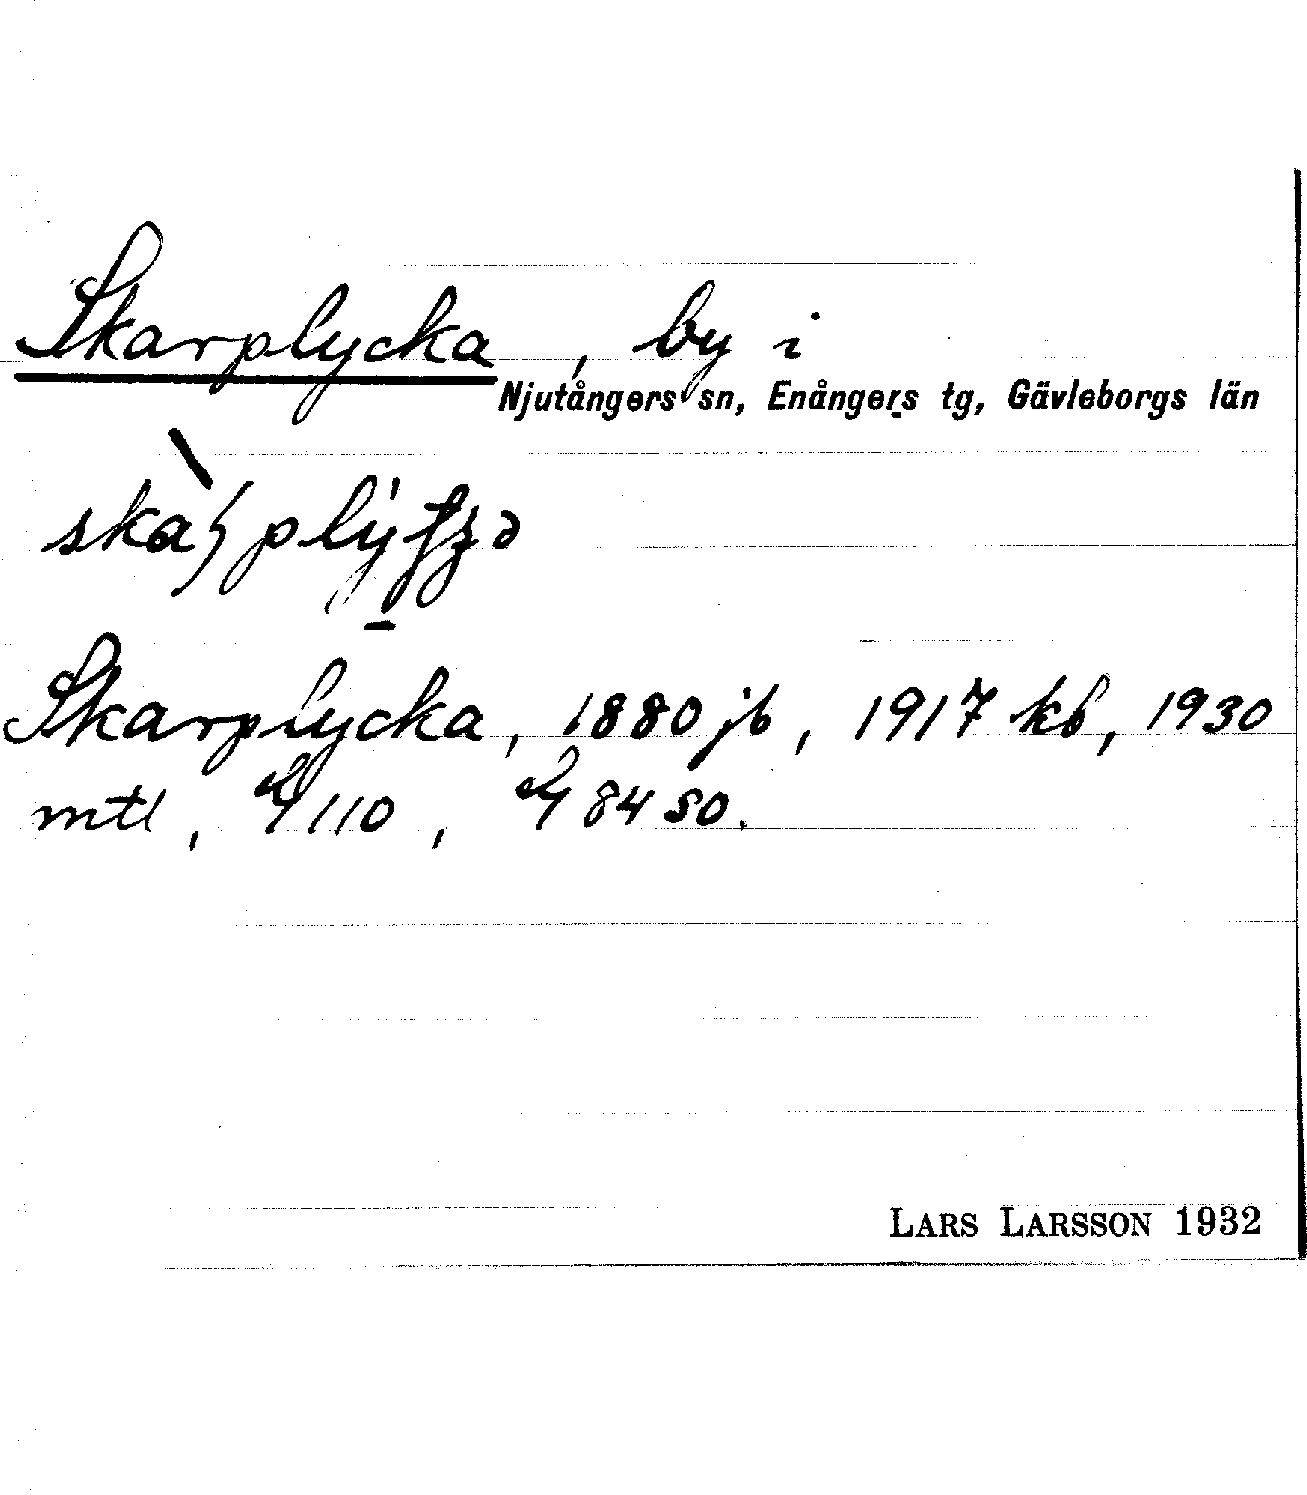 Skarplycka, by i
Njutångers sn, Enångers tg, Gävleborgs län
Skarplycka, 1880 jb, 1917 kb, 1930
mtl, 110, 84 SO.
LARS LARSSON 1932